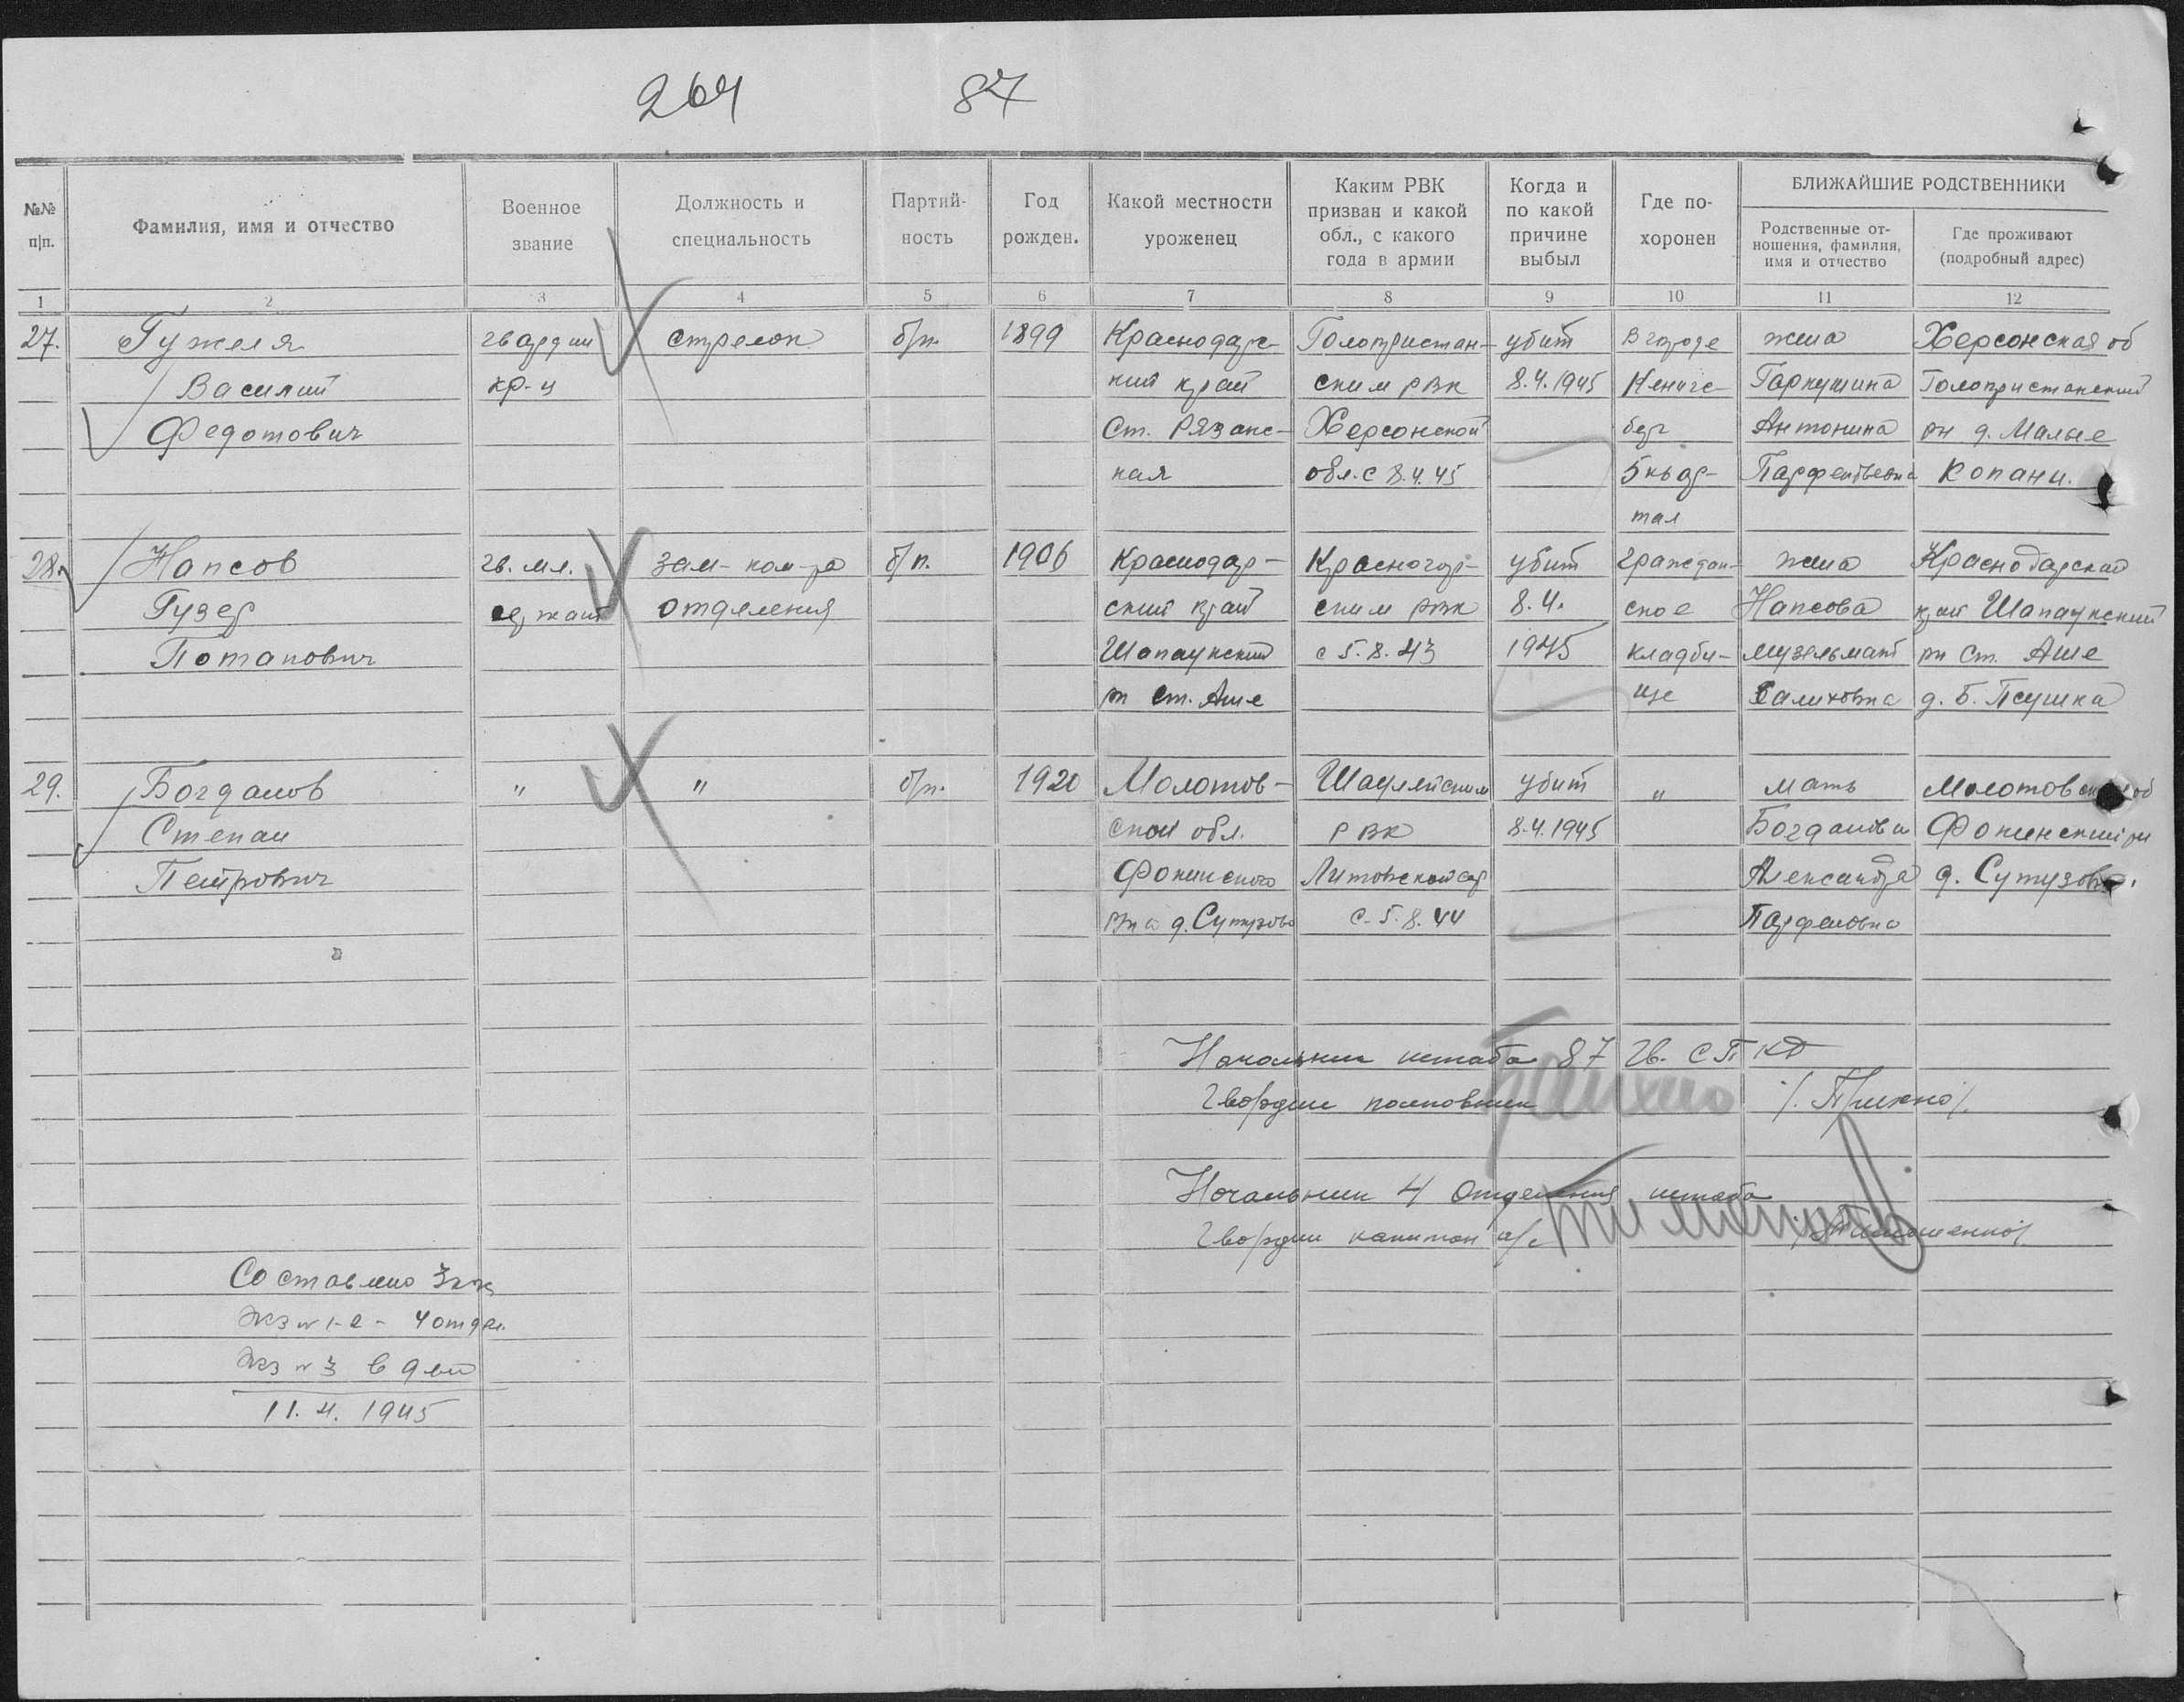 264 87
№№ п|п.
Фамилия, имя и отчество
Военное звание
Должность и специальность
Партий- ность
Год рожден.
Какой местности уроженец
Каким РВК призван и какой обл., с какого года в армии
Когда и по какой причине выбыл
Где по- хоронен
БЛИЖАЙШИЕ РОДСТВЕННИКИ
Родственные от- ношения, фамилия, имя и отчество
Где проживают (подробный адрес)
1 2 3 4 5 6 7 8 9 10 11 12
27. Гужеля гвардии стрелок б/п. 1899 Краснодарс- Голопристан- убит В городе жена Херсонская об
Василий кр-ц кий край ским РВК 8.4.1945 Кенигс- Гаркушина Голопристанский
Федотович Ст. Рязанс- Херсонской берг Антонина рн д. Малые
кая обл. с 8.4.45 5 квар- Парфентьевна Копани.
тал
28. Напсов гв. мл. зам- ком-ра б/п. 1906 Краснодар- Красногор- убит Граждан- жена Краснодарский
Гузер сержант отделения ский край ским РВК 8.4. ское Напсова край Шапаукский
Потапович Шапаукский с 5.8.43 1945 кладби- рн ст. Аше
рн ст. Аше ще Салиховна д. Б. Псушка
29. Богданов " " б/п. 1920 Молотов- Шауляйским убит " мать Молотовская об
Степан ской обл. РВК 8.4.1945 Богданова Фокинский рн
Петрович Фокинского Литовской сср Александра д. Сутузово.
рна д. Сутузово с 5.8.44 Парфеновна
Начальник штаба 87 гв. СП КД
Гвардии полковник
Начальник 4 Отделения штаба
Гвардии капитан а/с /Тимошенко/
Составлено 3 экз
Экз № 1-2 - 4 отдел.
Экз № 3 в дело
11.4.1945